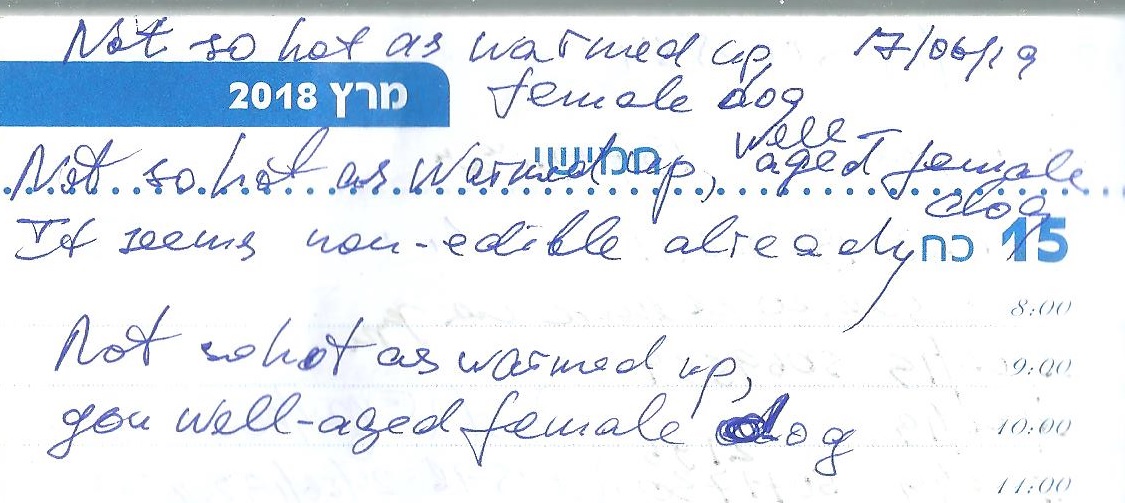 Not so hot as warmed up, 17/06/19
female dog
מרץ 2018
חמישי
Not so hot as warmed up, well aged female
dog
It seems non-edible already
כח 15
8:00
Not so hot as warmed up,
9:00
you well-aged female dog
10:00
11:00